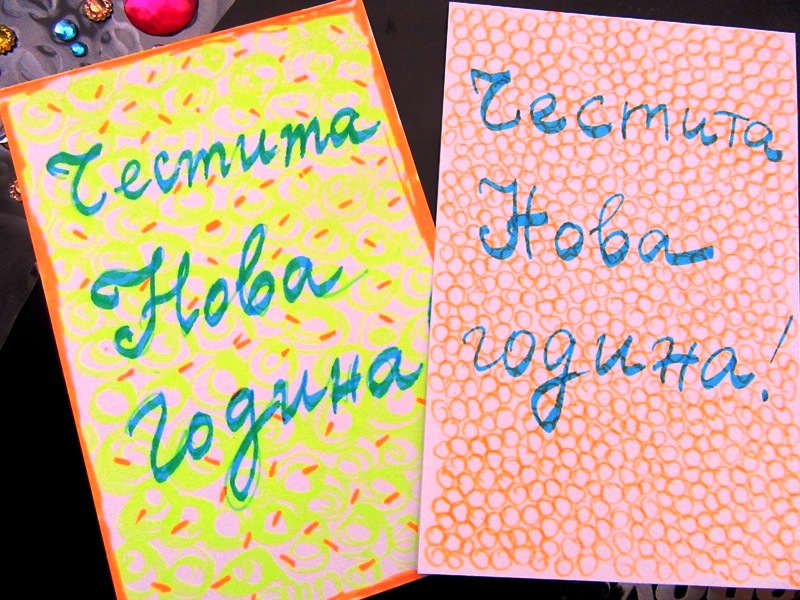 Честита
Нова
година
Честита
Нова
година!